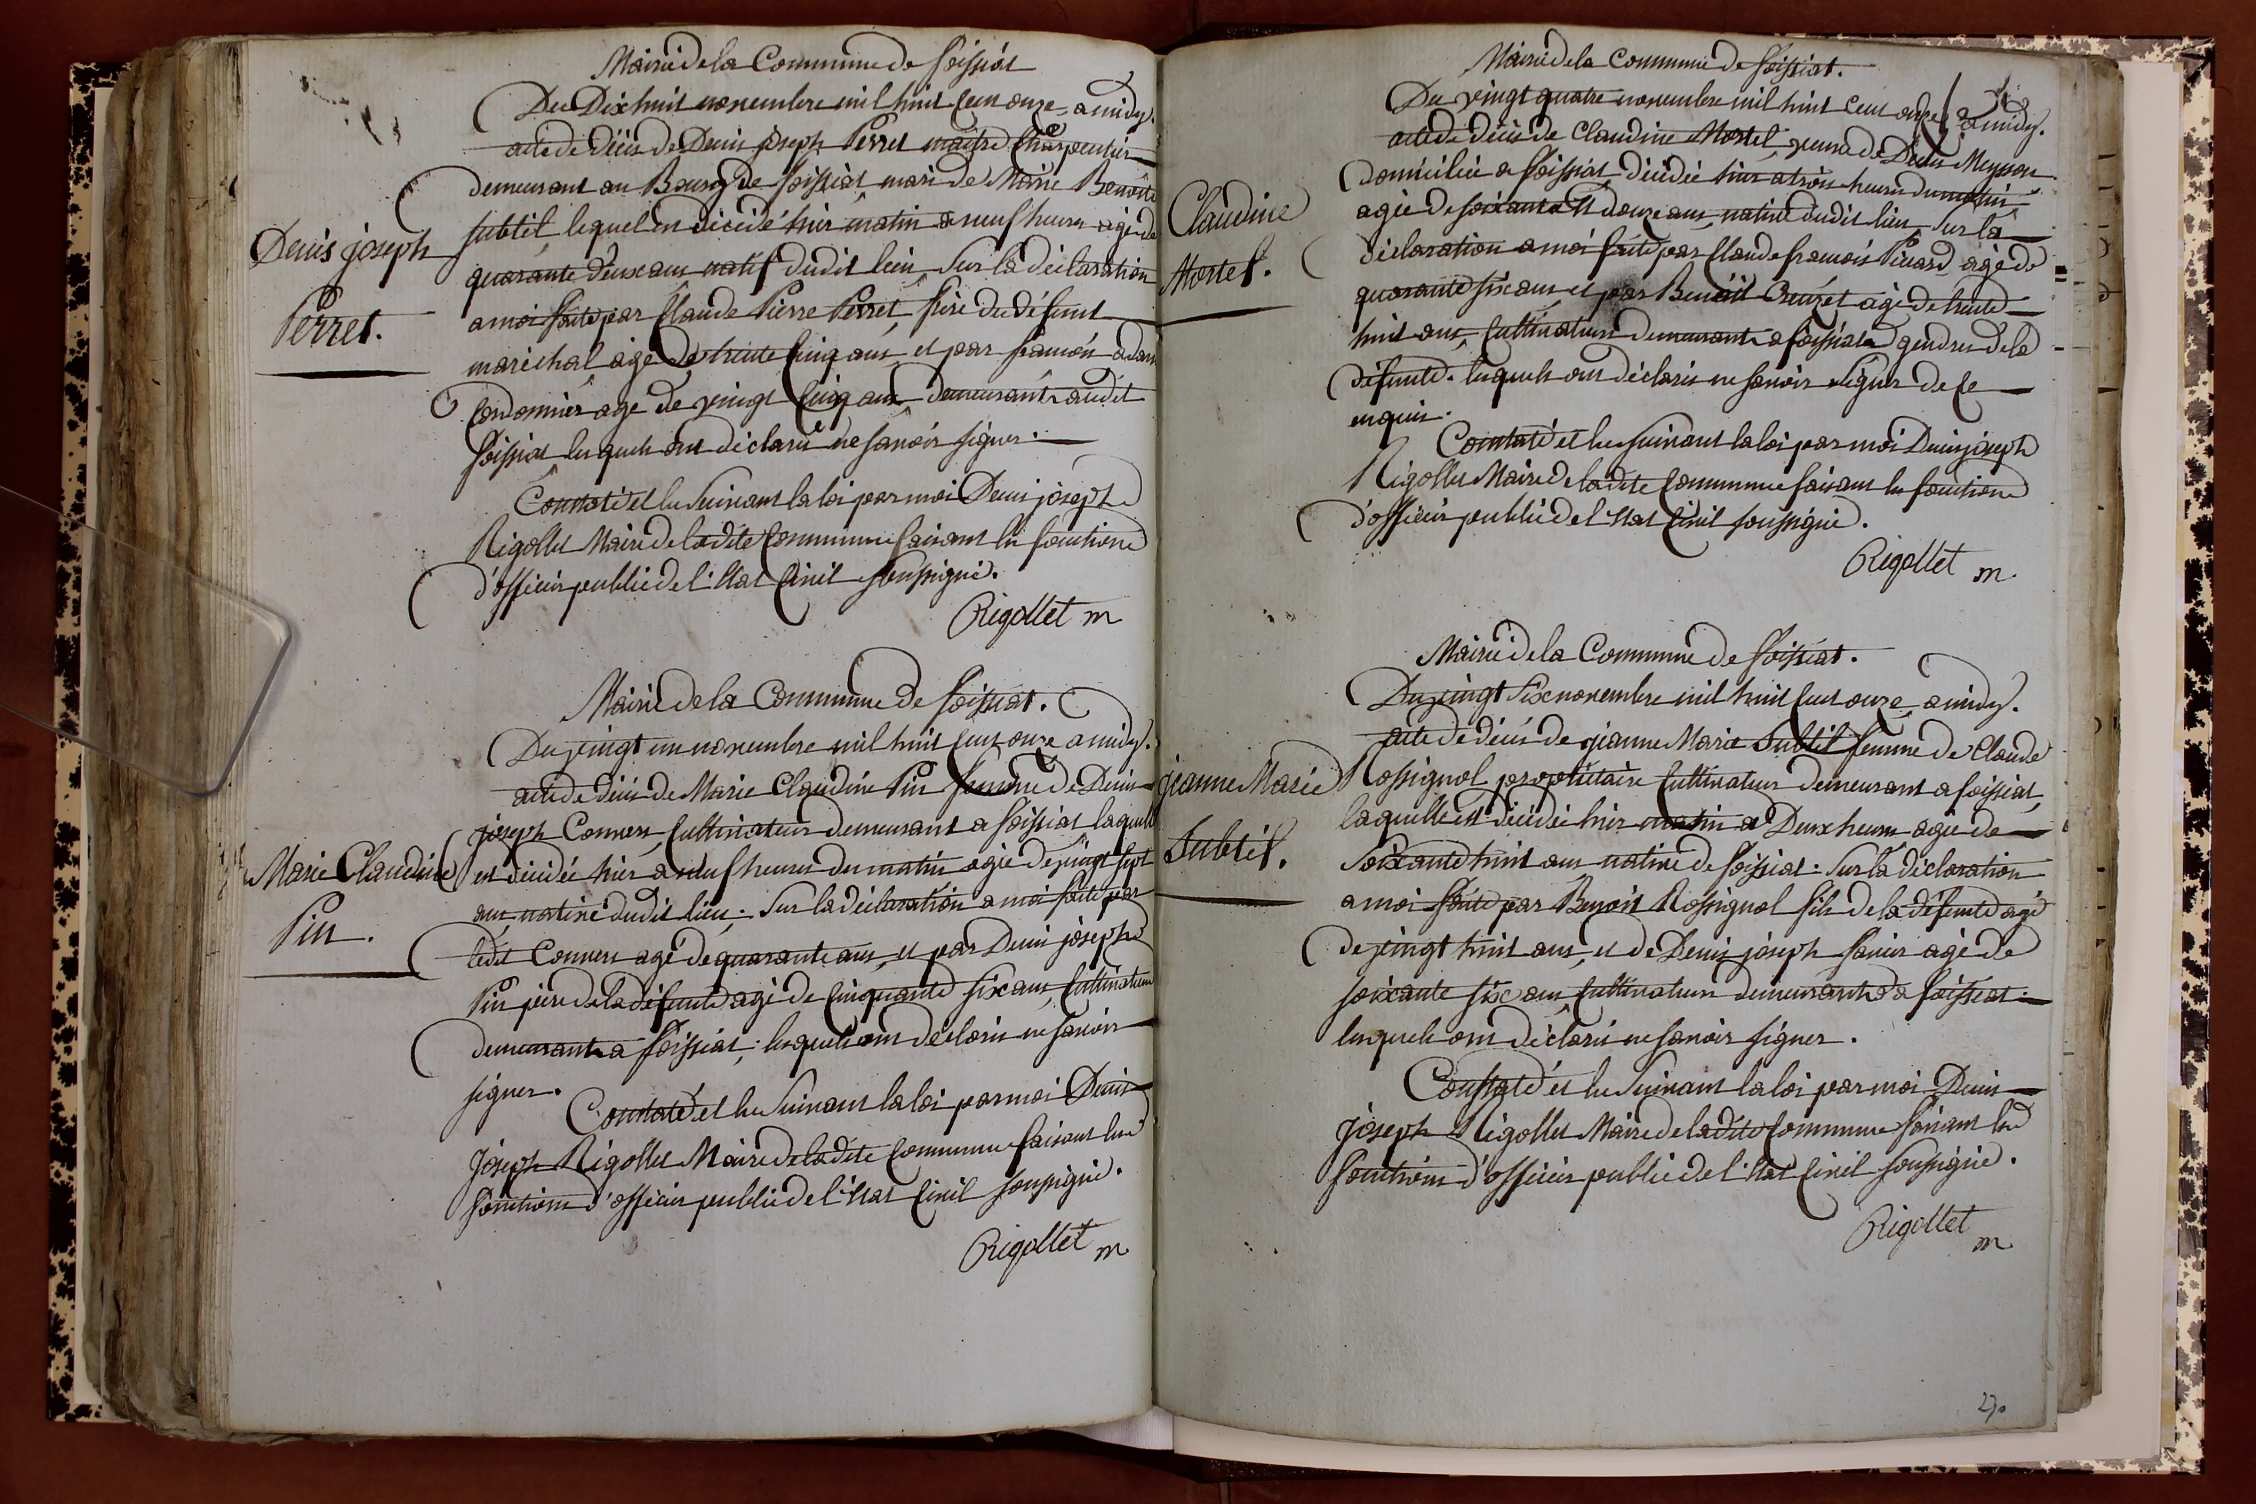 Mairie de la Commune de foissiat
Du Dix huit novembre mil huit Cent onze a midy.
acte de décés de Denis joseph Perret maitre Charpentier
demeurant au Bourg de foissiat, mari de Marie Benoite
subtil, lequel est décédé hier matin a neuf heures agé de
quarante deux ans natif dudit lieu, Sur la déclaration
a moi faite par Claude Pierre Perret, frere du défunt
maréchal agé de trente Cinq ans, et par françois adam
Cordonnier agé de vingt Cinq ans demeurants audit
foissiat lesquels ont déclaré ne savoir signer.
Constaté et lu Suivant la loi par moi Denis joseph
Rigollet Maire de ladite Commune faisant les fonctions
d'officier public de l'état Civil soussigné.
Rigollet m
Denis joseph
Perret.
Mairie de la Commune de foissiat.
Du vingt un novembre mil huit Cent onze a midy.
acte de décés de Marie Claudine Pin femme de Denis
joseph Convers, Cultivateur demeurant a foissiat laquelle
est décédée hier a neuf heures du matin agée de vingt sept
ans, native dudit lieu. Sur la déclaration a moi faite par
ledit Convers agé de quarante ans, et par Denis joseph
Pin pere de la défunte agé de Cinquante six ans, Cultivateurs
demeurants a foissiat, lesquels ont déclaré ne savoir
signer.
Constaté et lu Suivant la loi par moi Denis
Joseph Rigollet Maire de ladite Commune faisant les
fonctions d'officier public de l'état Civil soussigné.
Rigollet m
Marie Claudine
Pin.
Mairie de la Commune de foissiat.
Du vingt quatre novembre mil huit Cent onze a midy.
acte de décés de Claudine Mortel, veuve de Denis
domiciliée a foissiat décédée hier a trois heures du matin
agée de soixante et douze ans, native dudit lieu, Sur la
déclaration a moi faite par Claude françois Picard, agé de
quarante six ans et par Benoit Creuzet agé de trente
huit ans, Cultivateurs demeurants a foissiat gendres de la
défunte. lesquels ont déclaré ne savoir signer de Ce
enquis.
Constaté et lu suivant la loi par moi Denis joseph
Rigollet Maire de ladite Commune faisant les fonctions
d'officier public de l'état Civil soussigné.
Rigollet m.
Claudine
Mortel.
Mairie de la Commune de foissiat.
Du vingt six novembre mil huit Cent onze, a midy.
acte de décés de jeanne Marie Subtil femme de Claude
Rossignol, propriétaire Cultivateur demeurant a foissiat,
laquelle est décédé hier matin a Deux heures agée de
soixante huit ans native de foissiat. Sur la déclaration
a moi faite par Benoit Rossignol fils de la défunte agé
de vingt huit ans, et de Denis joseph agé de
soixante six ans Cultivateurs demeurants a foissiat.
lesquels ont déclaré ne savoir signer.
Constaté et lu Suivant la loi par moi Denis
joseph Rigollet Maire de ladite Commune faisant les
fonctions d'officier public de l'état Civil soussigné.
Rigollet
m
jeanne Marie
Subtil.